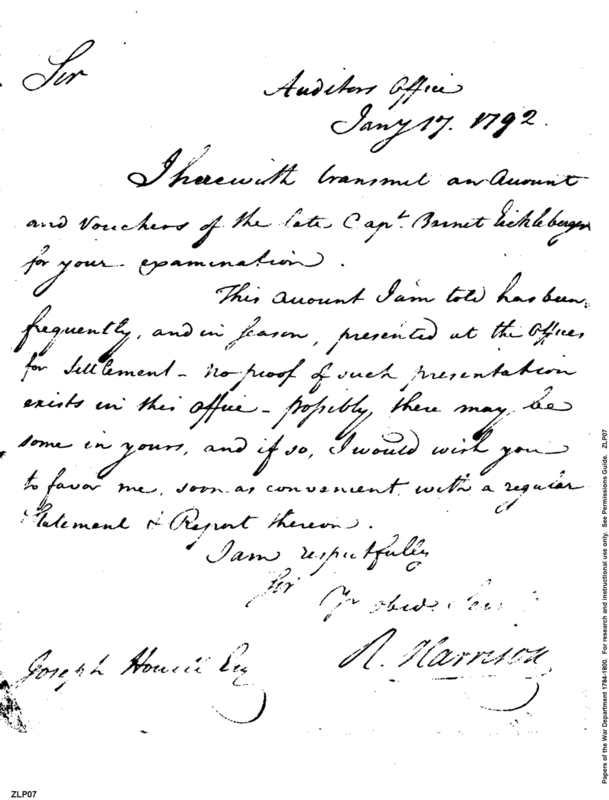 Sir
Auditors Office
Jany 17. 1792.
I herewith transmit an Account
and Vouchers of the late Capt. Barnet Eickleberger
for your examination.
This account I am told has been
frequently, and in season, presented at the Offices
for Settlement - no proof of such presentation
exists in this office - possibly, there may be
some in yours, and if so, I would wish you
to favor me, soon as convenient with a regular
Statement & Report thereon.
I am respectfully
Sir
Yr obed. Serv
R. Harrison
Joseph Howell Esq
Papers of the War Department 1784-1800. For research and instructional use only. See Permissions Guide. ZLP07
ZLP07